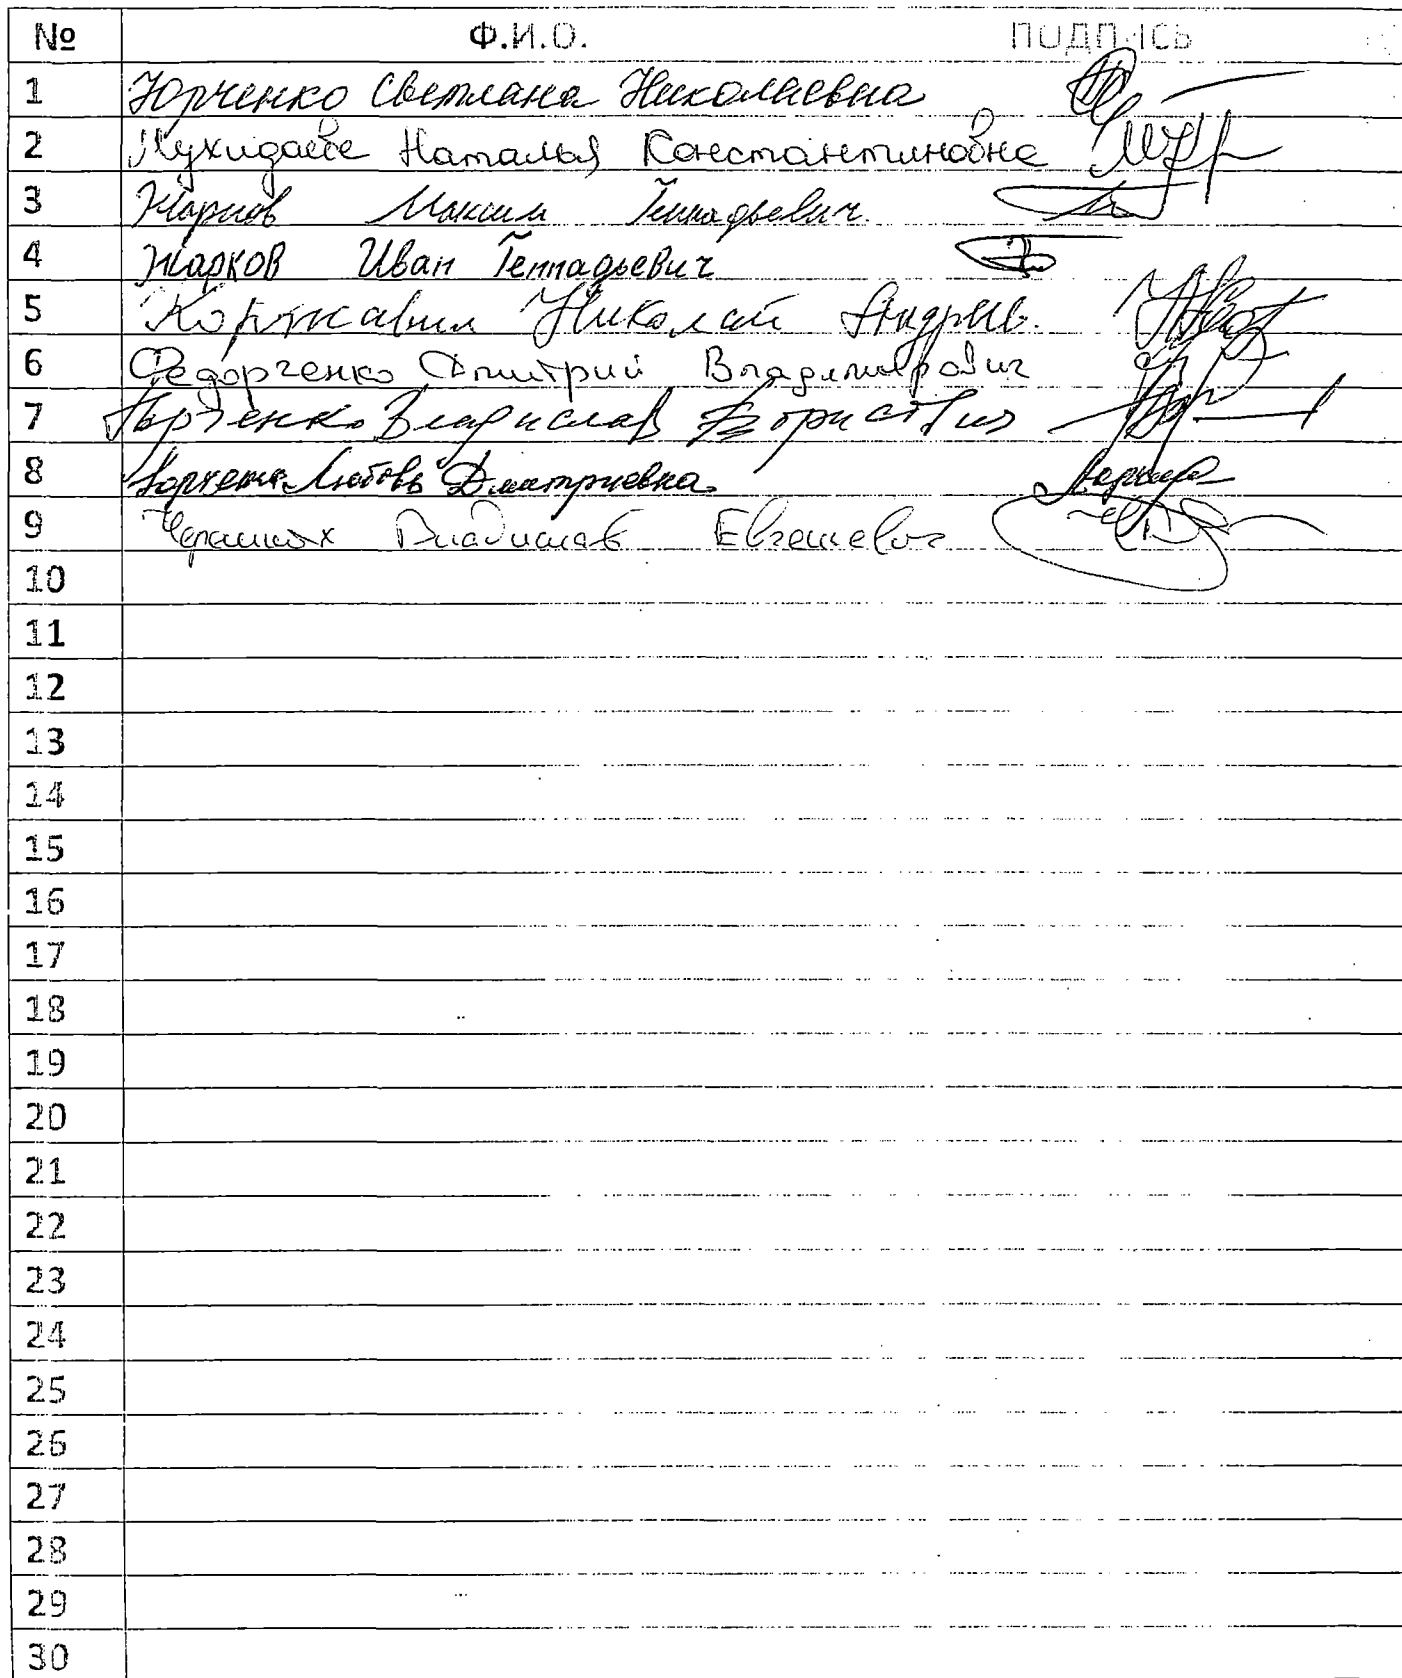 № Ф.И.О. ПОДПИСЬ
1 Юрченко Светлана Николаевна
2 Наталья Константиновна
3 Жарков Максим Геннадьевич
4 Жарков Иван Геннадьевич
5 Коржавин Николай Андреев.
6 Федорченко Дмитрий Владимирович
7 Юрченко Владислав Борисович
8 Юрченко Любовь Дмитриевна
9 Черемных Владислав Евгеньевич
10
11
12
13
14
15
16
17
18
19
20
21
22
23
24
25
26
27
28
29
30